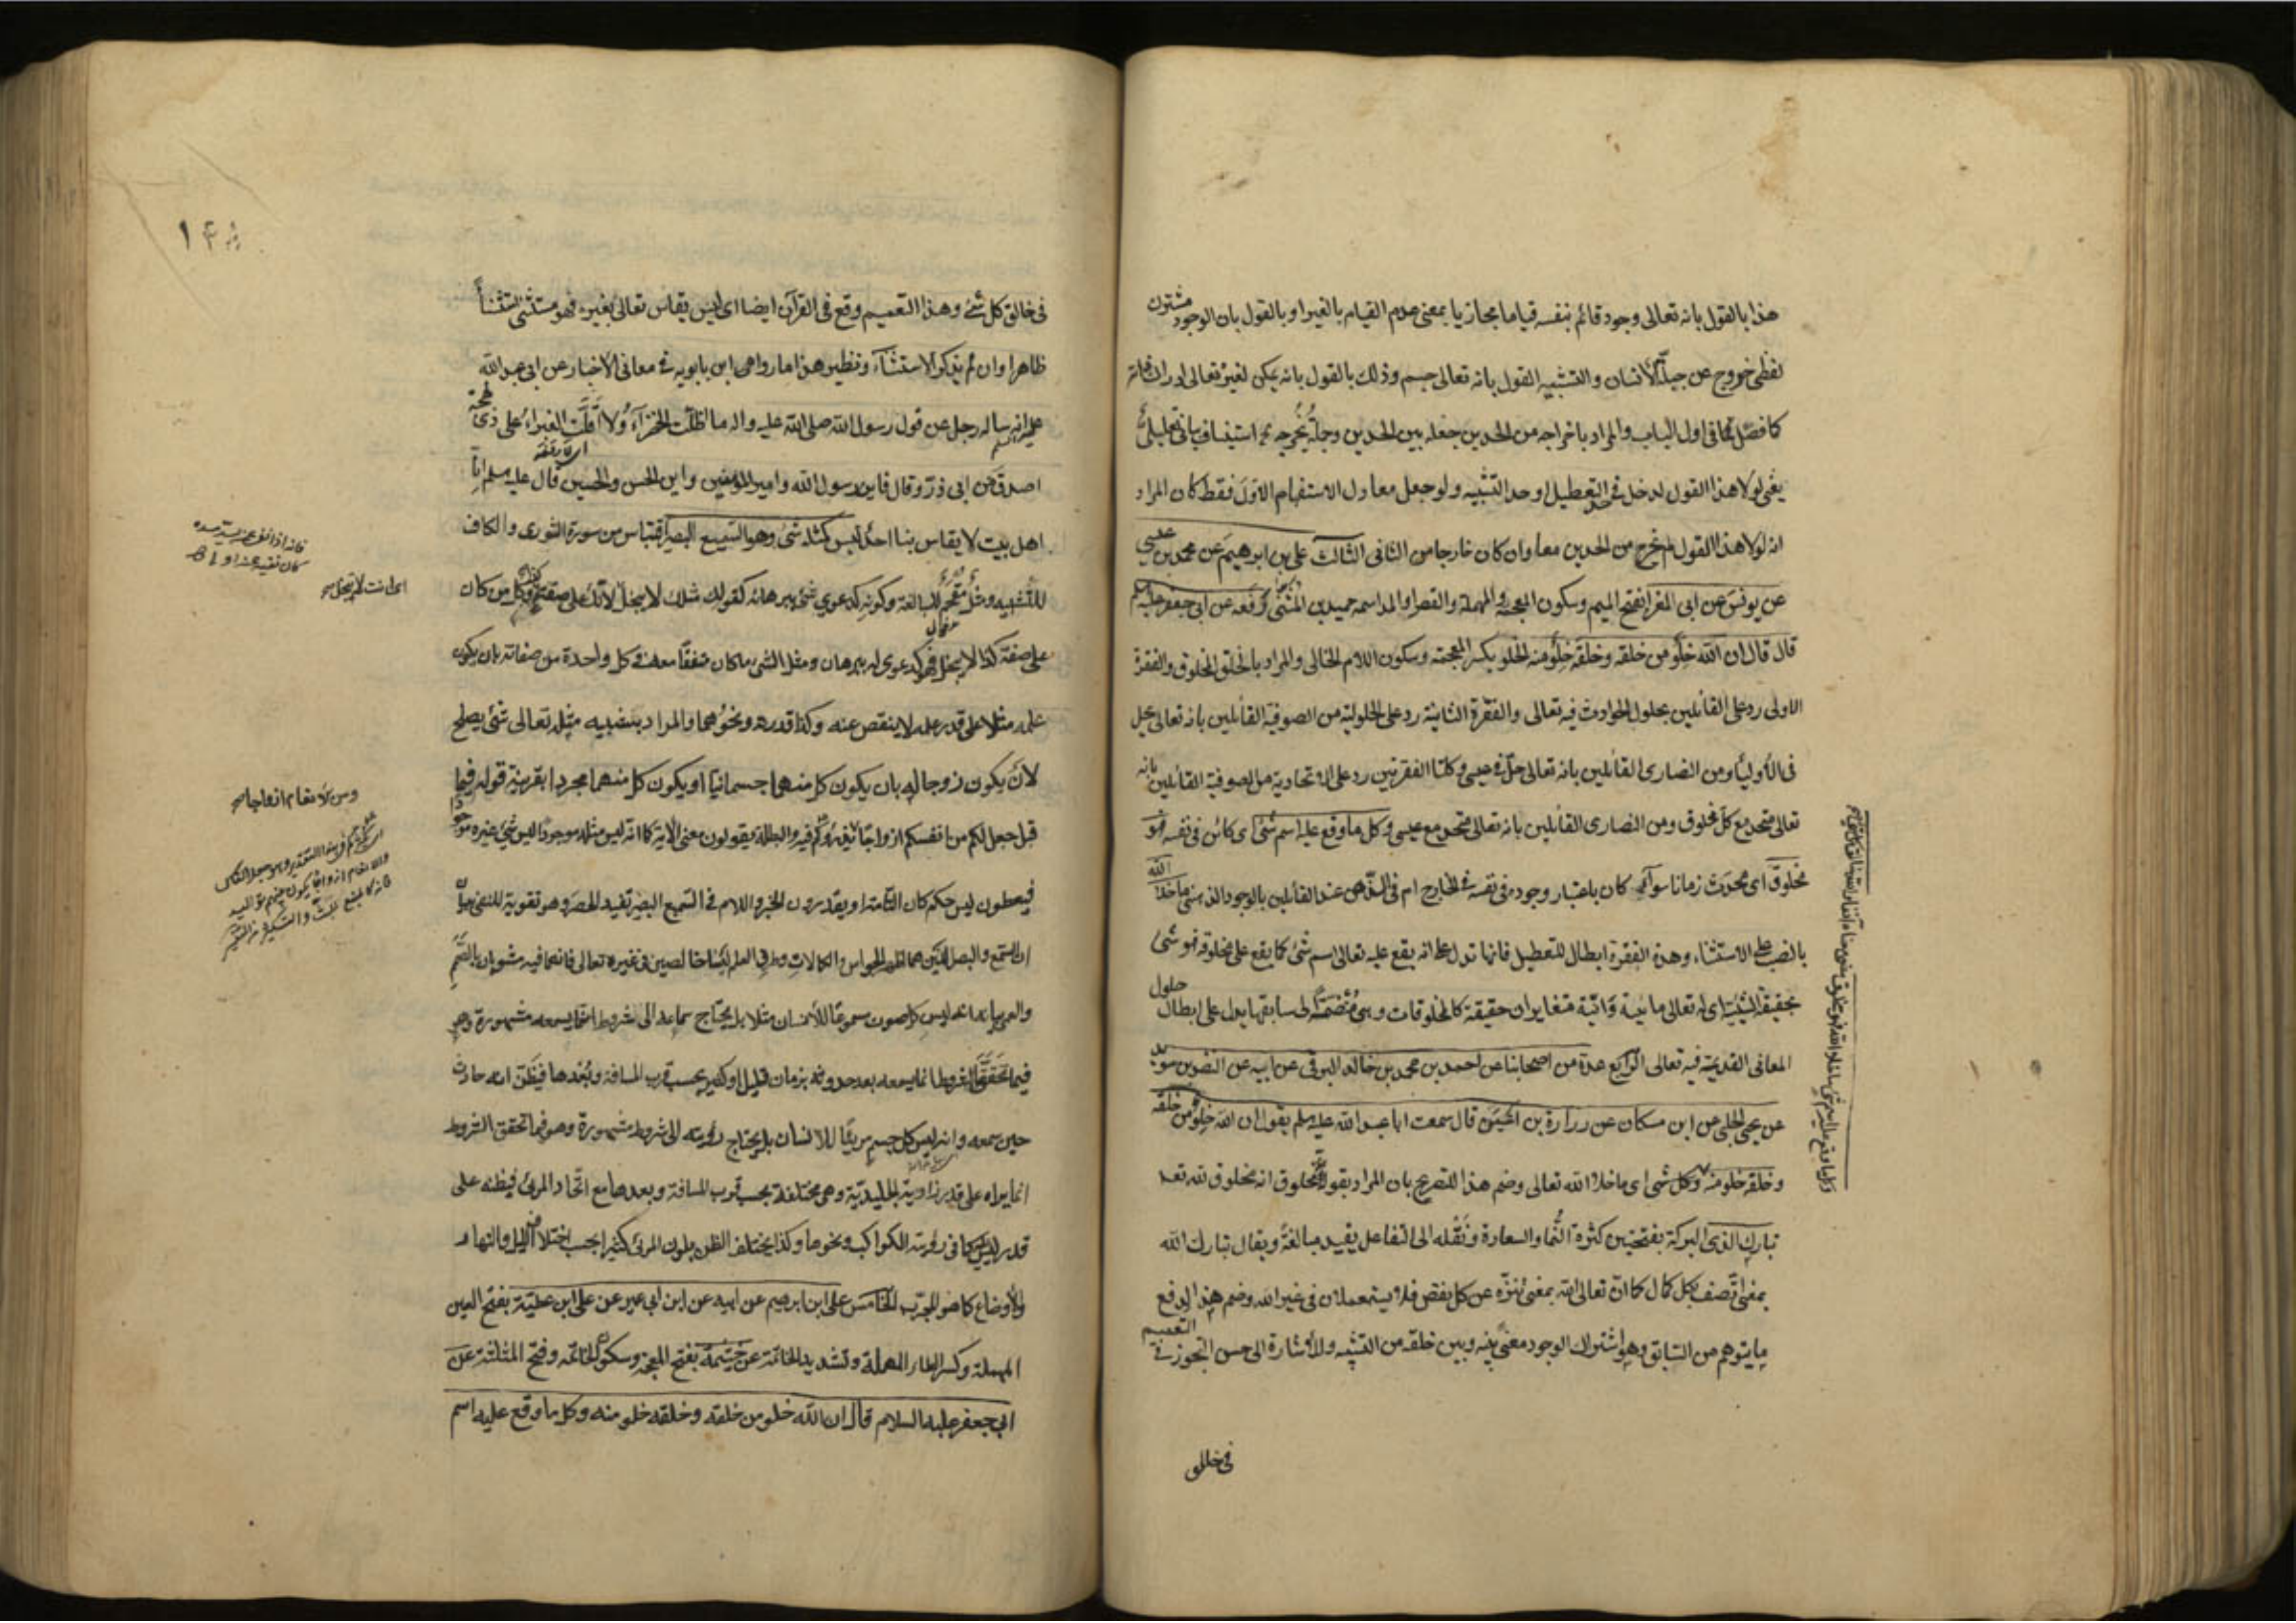 هذا بالقول بانه تعالى وجود قائم بنفسه قياما مجازيا بمعنى عدم القيام بالغير او بالقول بان الوجود مشترك
لفظى خروج عن جبلّة الانسان والتشبيه القول بانه تعالى جسم وذلك بالقول بانه يمكن لغيره تعالى ادراك ذاته
كما فصّل فى اول الباب والمراد باخراجه من الحدين جعله بين الحدين وجملة يُخْرجه استيناف بيانى تعليلى
يعنى لولا هذا القول لدخل فى حد التعطيل او حد التشبيه ولو جعل معادل الاستفهام الاول فقط كان المراد
انه لولا هذا القول لم يخرج من الحدين معا وان كان خارجا من الثانى الثالث على بن ابرهيم عن محمد بن عيسى
عن يونس عن ابى المغرا بفتح الميم وسكون المعجمة والمهملة والقصر او المد اسمه حميد بن المثنى رفعه عن ابى جعفر عليه السلم
قال قال ان الله خِلْو من خلقه وخلقه خِلْو منه الخلو بكسر المعجمة وسكون اللام الخالى والمراد بالخلق المخلوق والفقرة
الاولى رد على القائلين بحلول الحوادث فيه تعالى والفقرة الثانية رد على الحلولية من الصوفية القائلين بانه تعالى يحل
فى الاولياء ومن النصارى القائلين بانه تعالى حلّ فى عيسى وكلتا الفقرتين رد على الاتحادية من الصوفية القائلين بانه
تعالى متحد مع كل مخلوق ومن النصارى القائلين بانه تعالى متحد مع عيسى وكل ما وقع عليه اسم شئ اى كائن فى نفسه فهو
مخلوق اى محدث زمانا سواء كان باعتبار وجوده فى نفسه فى الخارج ام فى الذهن عند القائلين بالوجود الذهنى ما خلا الله
بالنصب على الاستثناء وهذه الفقرة ابطال للتعطيل فانها تدل على انه يقع عليه تعالى اسم شئ كما يقع على مخلوقه فهو شئ
بحقيقة الشيئية اى له تعالى مائية وانّية متغايران حقيقة كالمخلوقات وهى مُنْضمّة الى سابقها يدل على ابطال حلول
المعانى القديمة فيه تعالى الرابع عدة من اصحابنا عن احمد بن محمد بن خالد البرقى عن ابيه عن النضر بن سويد
عن يحيى الحلبى عن ابن مسكان عن زرارة بن اعين قال سمعت ابا عبد الله عليه السلم يقول ان الله خِلْو من خلقه
وخلقه خلو منه وكل شئ اى ما خلا الله تعالى وضم هذا للتصريح بان المراد بقوله مخلوق انه مخلوق لله تعا
تبارك الذى البركة بفتحتين كثرة النّماء والسعادة ونَقْله الى التفاعل يفيد مبالغة ويقال تبارك الله
بمعنى اتّصف بكل كمال كما انّ تعالى الله بمعنى تنزّه عن كل نقص فلا يستعملان فى غير الله وضم هذا لدفع
ما يتوهم من السابق وهو اشتراك الوجود معنى بينه وبين خلقه من التشبيه وللاشارة الى حسن التجوز فى التعميم
فى خالق
١٤٨
فى خالق كل شئ وهذا التعميم وقع فى القرآن ايضا اى ليس يقاس تعالى بغيره فهو مستثنى استثناءً
ظاهرا وان لم يذكر الاستثناء ونظير هذا ما رواه ابن بابويه فى معانى الاخبار عن ابى عبد الله
عليه السلم انه ساله رجل عن قول رسول الله صلى الله عليه واله ما اظلّت الخضراء ولا اَقلّت الغبراء على ذى لهجة
اصدق من ابى ذرّ وقال فاين رسول الله وامير المؤمنين واين الحسن والحسين قال عليه السلم انّا
اهل بيت لا يقاس بنا احد ليس كمثله شئ وهو السميع البصير اقتباس من سورة الشورى والكاف
للتشبيه ومثل مُقْحَم للمبالغة وكونه كدعوى شئ ببرهانه كقولك مثلك لا يبخل لانك على صفة كذا وكل من كان
على صفة كذا لا يبخل فهو كدعوى له ببرهان ومثل الشئ ما كان متفقا معه فى كل واحدة من صفاته بان يكون
علمه مثلا على قدر علمه لا ينقص عنه وكذا قدرته ونحوهما والمراد بشبيه مثله تعالى شئ يصلح
لان يكون زوجا له بان يكون كل منهما جسمانيا او يكون كل منهما مجردا بقرينة قوله فيها
قبل جعل لكم من انفسكم ازواجا يذرؤكم فيه والمعطلة يقولون معنى الاية كما انه ليس مثله موجودا ليس شئ غيره موجودا
فيجعلون ليس حكم كان التامة او يقدرون الخبر واللام فى السميع البصير تفيد الحصر وهو تقوية للنفى ببيان
ان السمع والبصر اللذين هما اظهر الحواس والكمالات وطرق العلم ليسا خالصين فى غيره تعالى فانهما فيه مشوبان بالصَّمَم
والعمى بيانه انه ليس كل صوت مسموعًا للانسان مثلا بل يحتاج سماعه الى شروط مشهورة وهو
فيما تَحقّق الشروط انما يسمعه بعد حدوثه بزمان قليل او كثير بحسب قرب المسافة وبُعْدها فيظن انه حادث
حين سمعه وانه ليس كل جسم مرئيّا للانسان بل يحتاج رؤيته الى شروط مشهورة وهو فيما تحقق الشروط
انما يراه على قدر زاوية الجليدية وهى مختلفة بحسب قرب المسافة وبعدها مع اتحاد المرئى فيظنه على
قدر ليس كما فى رؤية الكواكب ونحوها وكذا يختلف الظن بلون المرئى كثيرا بحسب اختلاف الليل والنهار
والاوضاع كما هو المجرّب الخامس على بن ابرهيم عن ابيه عن ابن ابى عمير عن على بن عطيّة بفتح العين
المهملة وكسر الطاء المهملة وتشديد الخاتمة عن خَيْثَمَة بفتح المعجمة وسكون الخاتمة وفتح المثلثة عن
ابى جعفر عليه السلام قال ان الله خلو من خلقه وخلقه خلو منه وكل ما وقع عليه اسم
اى انت لا تبخل
ومن الانعام ازواجا